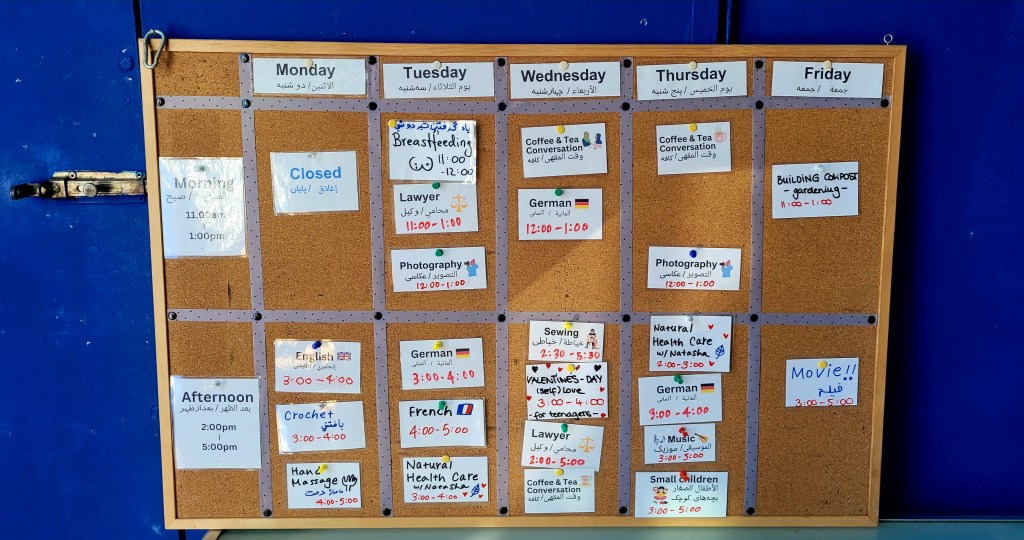 Monday
الاثنين/ دو شنبه
Tuesday
يوم الثلاثاء/ سه‌شنبه
Wednesday
الأربعاء/ چهارشنبه
Thursday
يوم الخميس/ پنج شنبه
Friday
جمعة / جمعه
Morning
الصباح / صبح
11:00am
1:00pm
Closed
إغلاق / پایان
Breastfeeding
11:00
-12:00
Lawyer
محامي/ وکیل
11:00-1:00
Photography
التصوير/ عکاسی
12:00-1:00
Coffee & Tea
Conversation
وقت المقهى/ کافه
German
ألمانية / آلمانی
12:00-1:00
Coffee & Tea
Conversation
وقت المقهى/ کافه
Photography
التصوير/ عکاسی
12:00-1:00
BUILDING COMPOST
- gardening -
11:00-1:00
Afternoon
بعد الظهر/ بعدازظهر
2:00pm
5:00pm
English
إنجليزي/ انگلیسی
3:00-4:00
Crochet
بافتنی
3:00-4:00
Hand
Massage
ماساژ دست
4:00-5:00
German
ألمانية / آلمانی
3:00-4:00
French
4:00-5:00
Natural
Health Care
w/Natasha
3:00-4:00
Sewing
خياطة/ خیاطی
2:30-5:30
VALENTINES-DAY
(self) Love
3:00-4:00
-for teenagers-
Lawyer
محامي/ وکیل
2:00-5:00
Coffee & Tea
Conversation
وقت المقهى/ کافه
Natural
Health Care
w/Natasha
2:00-3:00
German
ألمانية / آلمانی
3:00-4:00
Music
الموسيقى/ موزیک
3:00-5:00
Small children
الأطفال الصغار
بچه‌های کوچک
3:00-5:00
Movie!!
فیلم
3:00-5:00